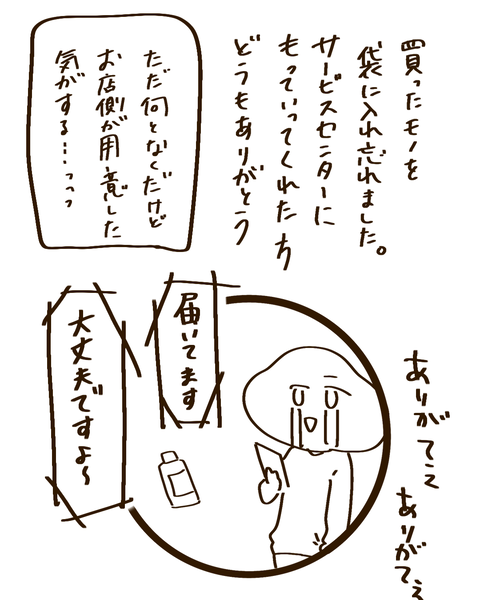 買ったモノを
袋に入れ忘れました。
サービスセンターに
もっていってくれた方
どうもありがとう
ただ何となくだけど
お店側が用意した
気がする…っっっ
届いてます
大丈夫ですよ〜
ありがてえ
ありがてえ